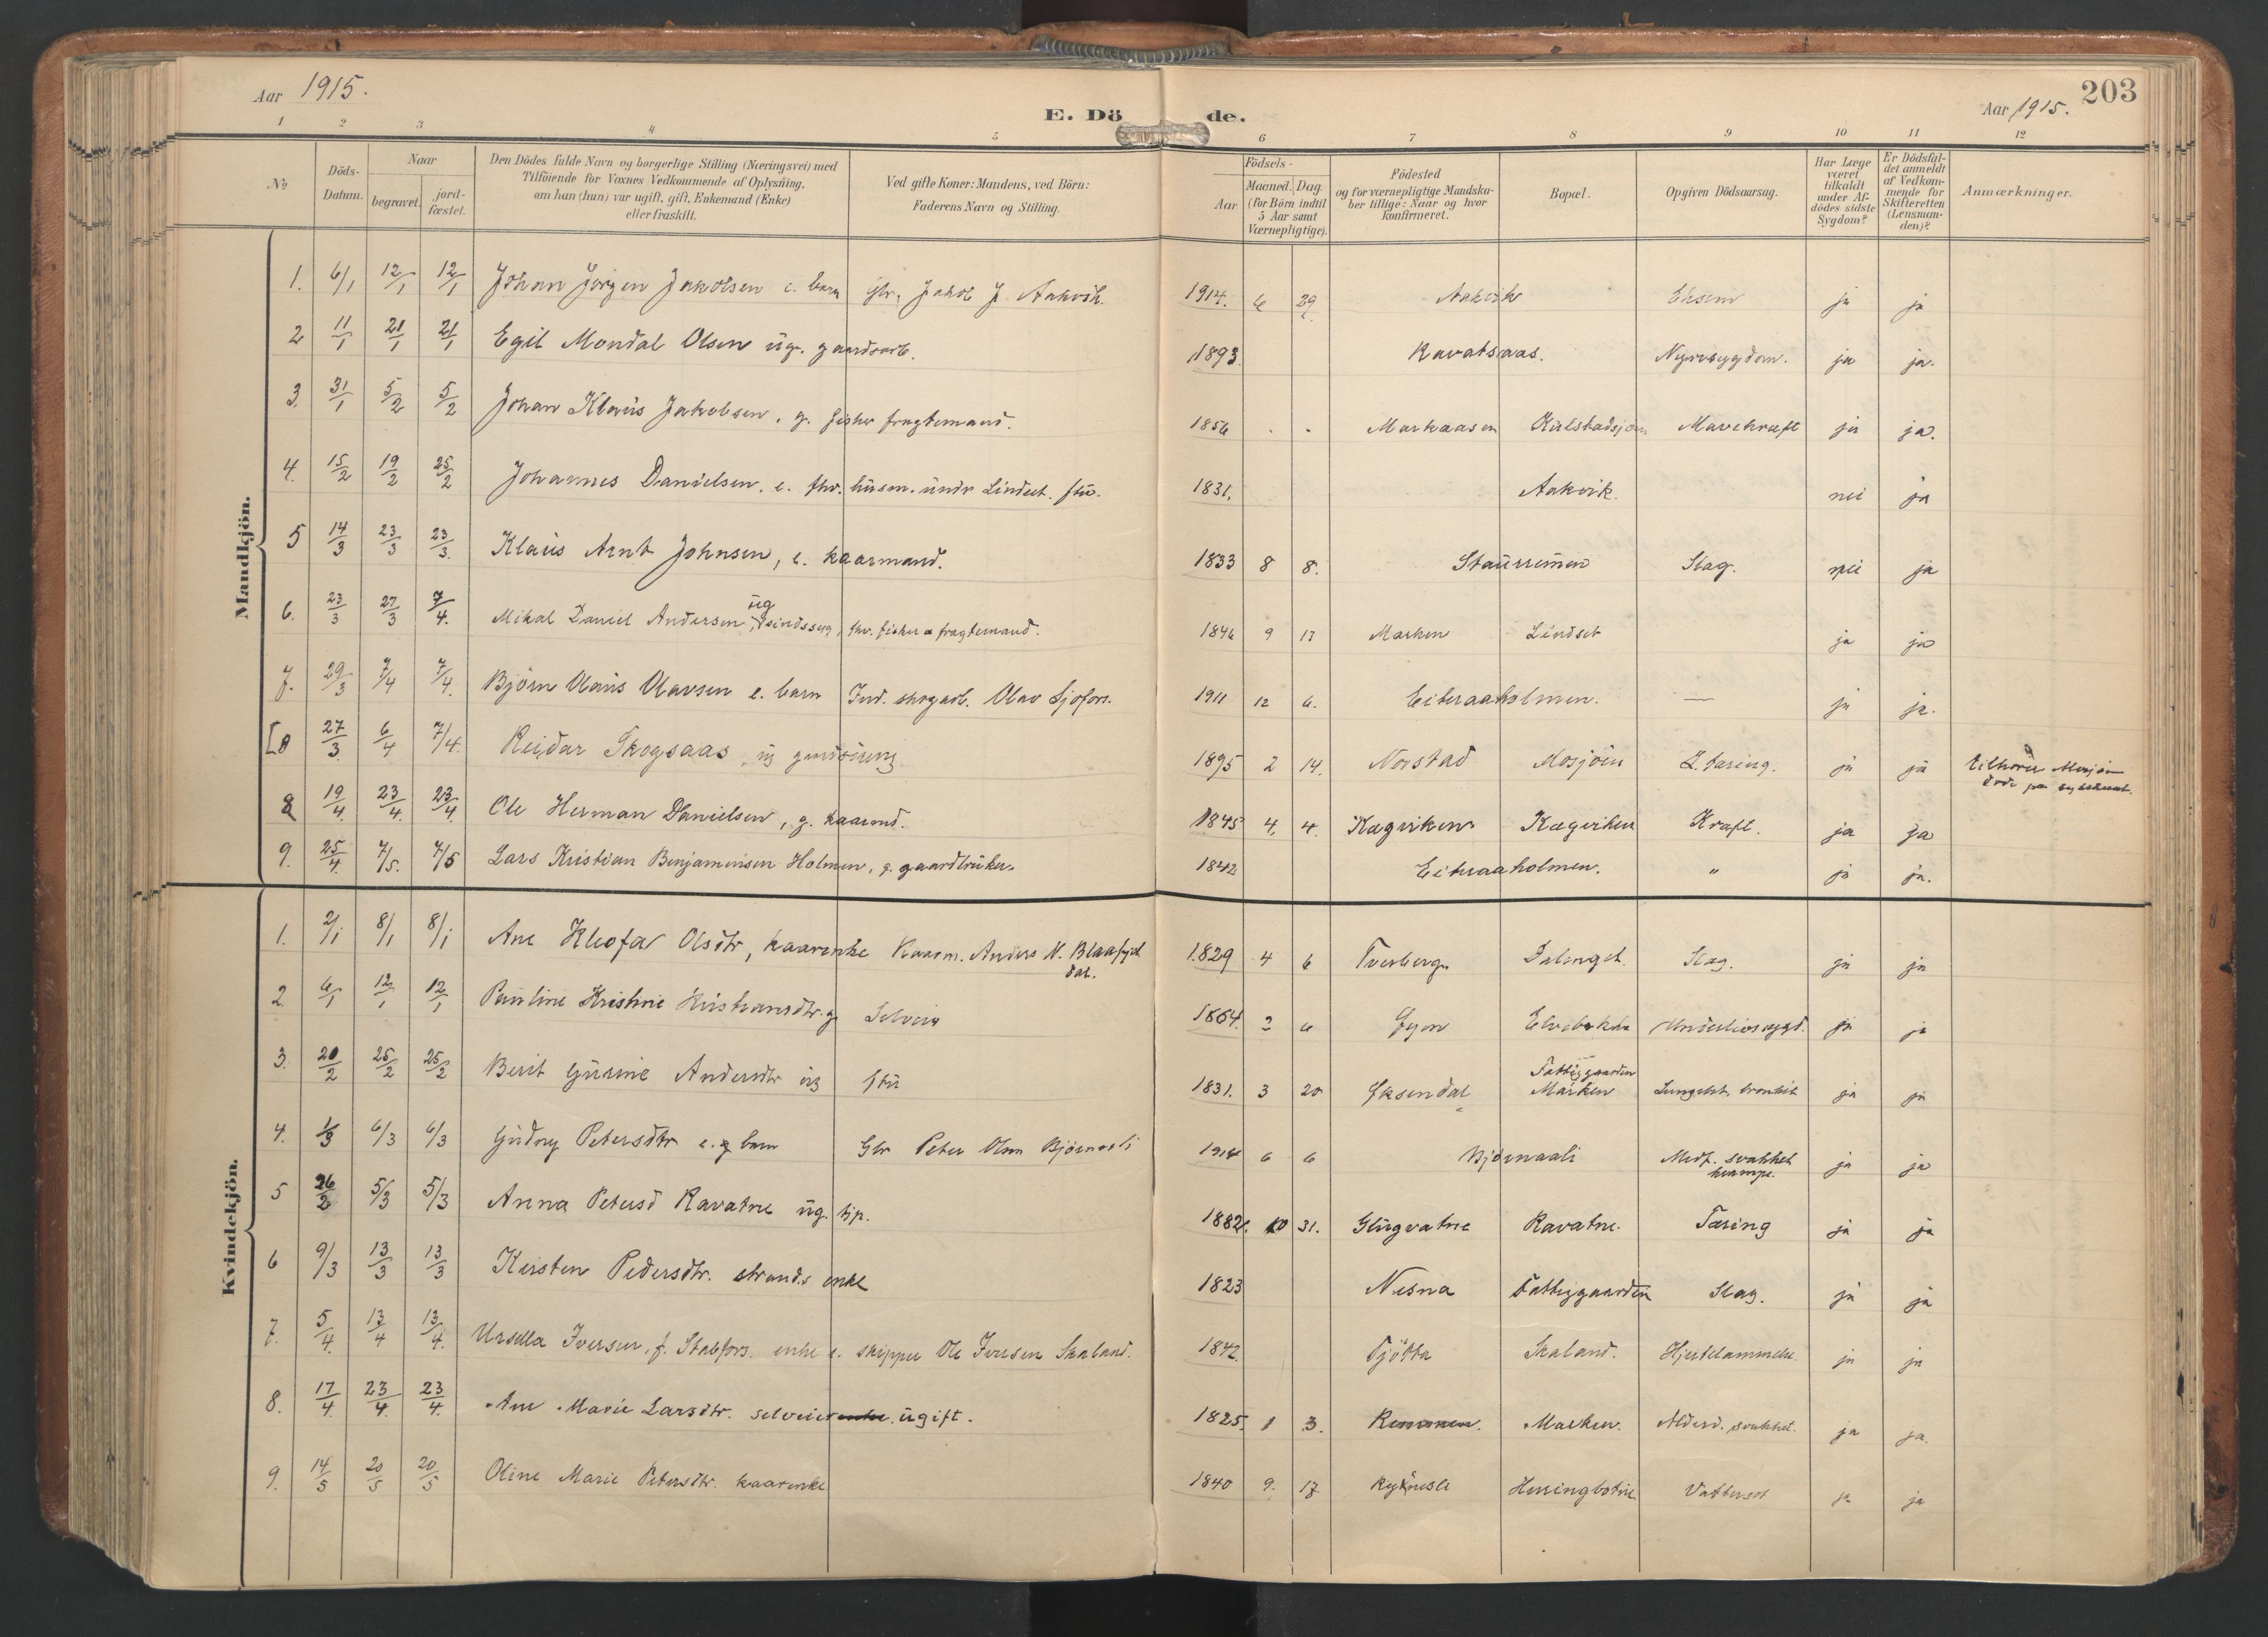 Aar 1915.
E. Döde.
Aar 1915.
203
1 2 3 4 5 6 7 8 9 10 11 12
No.
Döds-Datum.
Naar
begravet.
jord-fæstet.
Den Dödes fulde Navn og borgerlige Stilling (Næringsvei) med
Tilföiende for Voxnes Vedkommende af Oplysning,
om han (hun) var ugift, gift, Enkemand (Enke)
eller fraskilt.
Ved gifte Koner: Mandens, ved Börn:
Faderens Navn og Stilling.
Födsels-
Aar
Maaned. Dag.
(for Börn indtil
5 Aar samt
Værnepligtige).
Födested
og for værnepligtige Mandska-
ber tillige: Naar og hvor
konfirmeret.
Bopæl.
Opgiven Dödsaarsag.
Har Læge
været
tilkaldt
under Af-
dödes sidste
Sygdom?
Er Dödsfal-
det anmeldt
af Vedkom-
mende for
Skifteretten
(Lensman-
den)?
Anmærkninger.
Mandkjön.
1. 6/1 12/1 12/1 Johan Jørgen Jakobsen e. barn Jakob J. Aakvik. 1914. 29 Aakvik ja ja
2 11/1 21/1 21/1 Egil Mondal Olsen ug. gaardsarb. 1893. Ravatsaas. ja ja.
3. 31/1 5/2 5/2 Johan Klaus Jakobsen, g. fisker fragtemand. 1856 . . Markaasen Mavekræft ja ja.
4. 15/2 19/2 25/2 Johannes Danielsen, e. fhv. husm. under Lindset. 1831. Aakvik. nei ja
5 14/3 23/3 23/3. Klaus Arnt Johnsen, e. kaarmand. 1833 8 8. Slag. nei ja
6. 23/3 27/3 7/4. Mikal Daniel Andersen ug sindssyg, fhv. fisker fragtemand. 1846 9 13 Marken Lindset ja ja
7. 29/3 7/4 7/4. Bjørn Olaus Olavsen e. barn Ind. skogarb. Olav 1911 12 6. Eiteraaholmen. — ja ja.
[8 27/3. 6/4 7/4. Reidar Skogsaas, ug 1895 2 14. Norstad Mosjøen ja ja Mosjøen
8 19/4. 23/4. 23/4. Ole Herman Danielsen, g. kaarmd. 1845 4. 4. Kræft. ja ja
9. 25/4. 7/5. 7/5 Lars Kristian Benjaminsen Holmen, g. gaardbruker. 1842 Eiteraaholmen. " ja ja.
Kvindekjön.
1. 2/1 8/1 8/1 Ane Kleofa Olsdtr, kaarenke Kaarm. Anders N. Blaafjeldal. 1829 4 6 Tverberg. Dalenget. Slag. ja ja
2. 6/1 12/1 12/1 Pauline Kristine Kristiansdtr. g Selveier 1864. 2 6 ja ja
3. 20/2 25/2 25/2 Berit Gurine Andersdtr ug 1831. 3 20 Fattiggaarden Marken bronkit ja ja
4. 1/3 6/3 6/3 Gudny Petersdtr e. barn Gbr Peter Olsen Bjørnaali 1914 6 6 Bjørnaali Medf. svakhet krampe. ja ja
5 26/2 5/3 5/3 Anna Petersd Ravatne ug. tjp. 1882. 10 31. Glugvatne Ravatne. Tæring ja ja
6 9/3 13/3 13/3 Kersten Pedersdtr. strands. enke 1823 Nesna Fattiggaarden Slag. ja ja
7. 5/4. 13/4 13/4. Ursella Iversen, f. Stabfors. enke e. skipper Ole Iversen Skaland. 1842. Tjøtta Skaland. Hjertelammelse. ja ja
8. 17/4. 23/4. 23/4. Ane Marie Larsdtr. selveier ugift. 1825. 1 3. Marken. Alderd. svakhet. ja ja.
9. 14/5 20/5 20/5 Oline Marie Petersdtr. kaarenke 1840 9. 17. Herringbotn Vattersot ja ja